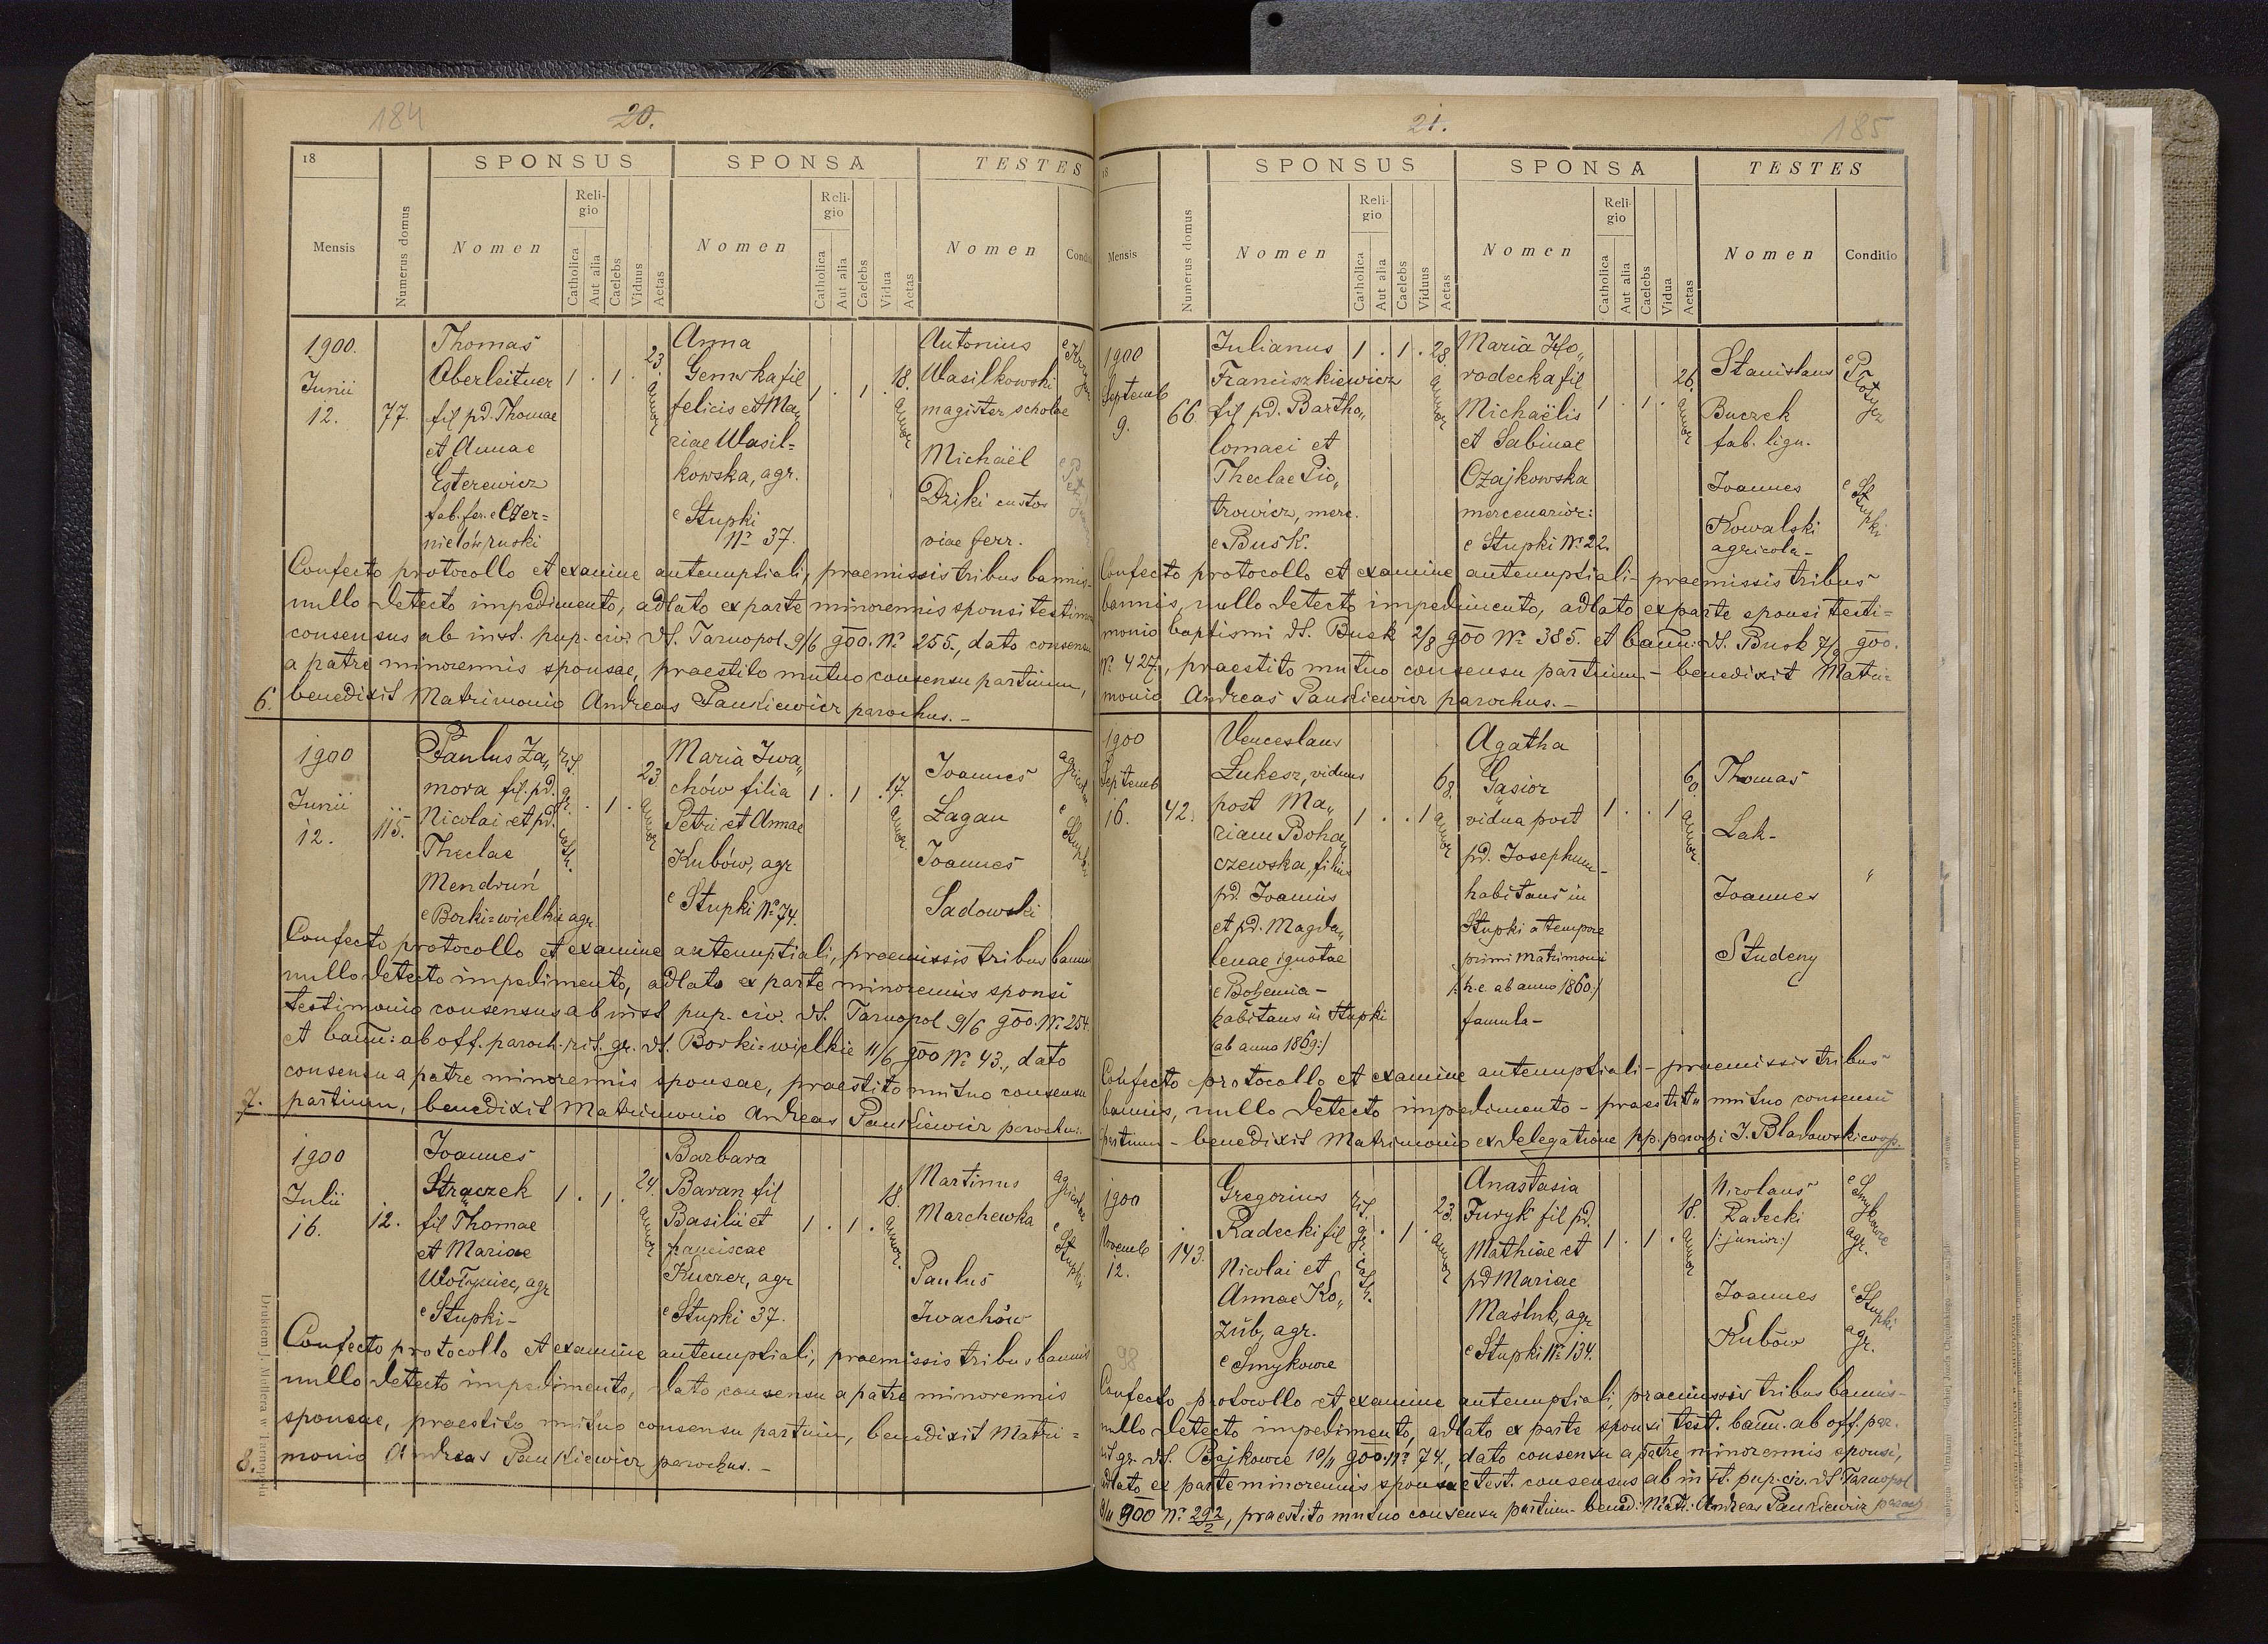 184
20.
18
SPONSUS
SPONSA
TESTES
Mensis
Numerus domus
Nomen
Religio
Catholica
Aut alia
Caelebs
Viduus
Aetas
Nomen
Religio
Catholica
Aut alia
Caelebs
Vidua
Aetas
Nomen
1900.
Junii
12.
77.
Thomas
Oberleitner
fil pd. Thomae
et Annae
Esterewicz
fab. fer. e Czer=
nielów ruski
1 . 1 .
23. annor
Anna
Gemska fil
felicis et Ma„
riae Wasil=
kowska, agr.
e Stupki
Nº 37.
1 . 1 .
18. annor
Antonius
Wasilkowski
magister scholae
Michaël
Dziki custos
viae ferr.
Confecto protocollo et examine antenuptiali, praemissis tribus bannis
nullo detecto impedimento, adlato ex parte minorennis sponsi testimo
consensus ab inst. pup. civ. dt. Tarnopol 9/6 900. Nº 255., dato consensu
a patre minorennis sponsae, praestito mutuo consensu partium,
6. benedixit Matrimonio Andreas Pankiewicz parochus. -
1900
Junii
12.
115.
Paulus Za„
mora fil. pd.
Nicolai et pd.
Theclae
Mendruń
e Borki=wielkie agr
rit. gr. cath.
. 1 .
23 annor
Maria Iwa„
chów filia
Petri et Annae
Kubów, agr
e Stupki Nº 74.
1 . 1 .
17. annor.
Joannes
Łagan
Joannes
Sadowski
agricolae e Stupki
Confecto protocollo et examine antenuptiali, praemissis tribus bannis
nullo detecto impedimento, adlato ex parte minorennis sponsi
testimonio consensus ab inst pup. civ. dt. Tarnopol 9/6 900. Nº 254.
et bann: ab off. paroch. rit. gr. dt. Borki=wielkie 11/6 900 Nº 43., dato
consensu a patre minorennis sponsae, praestito mutuo consensu
7. partium, benedixit Matrimonio Andreas Pankiewicz parochus.
1900
Julii
16.
12.
Joannes
Strączek
fil Thomae
et Mariae
Wołyniec, agr
e Stupki-
1 . 1 .
24. annor
Barbara
Baran fil
Basilii et
franciscae
Kuczer, agr
e Stupki 37.
1 . 1 .
18. annor.
Martinus
Marchewka
Paulus
Iwachów
agricolae e Stupki
Confecto protocollo et examine antenuptiali, praemissis tribus bannis
nullo detecto impedimento, dato consensu a patre minorennis
sponsae, praestito mutuo consensu partium, benedixit Matri=
8. monio Andreas Pankiewicz parochus. -
185
21.
18
SPONSUS
SPONSA
TESTES
Mensis
Numerus domus
Nomen
Religio
Catholica
Aut alia
Caelebs
Viduus
Aetas
Nomen
Religio
Catholica
Aut alia
Caelebs
Vidua
Aetas
Nomen
Conditio
1900
Septemb
9.
66.
Julianus
Franciszkiewicz
fil pd. Bartho„
lomaei et
Theclae Pio„
trowicz, merc.
e Busk.
1 . 1 .
28. annor
Maria Ho„
rodecka fil
Michaëlis
et Sabinae
Czajkowska
mercenarior:
e Stupki Nº 22.
1 . 1 .
26. annor
Stanislaus
Buczek
fab. lign.
Joannes
Kowalski
agricola-
e Stupki
Confecto protocollo et examine antenuptiali - praemissis tribus
bannis, nullo detecto impedimento, adlato ex parte sponsi testi=
monio baptismi dt. Busk 2/8 900 Nº 385. et bann: dt. Busk 7/9 900.
Nº 427, praestito mutuo consensu partium - benedixit Matri=
monio Andreas Pankiewicz parochus. -
1900
Septemb
16.
42.
Venceslaus
Lukesz, viduus
post Ma„
riam Boha„
czewska, filius
pd. Joannis
et pd. Magda„
lenae ignotae
e Bohemia -
habitans in Stupki
(ab anno 1869:)
1 . . 1
68. annor
Agatha
Gąsior
vidua post
pd. Josephum-
habitans in
Stupki a tempore
primi matrimonii
(: h.e. ab anno 1860:)
famula-
1 . . 1
60. annor.
Thomas
Lak-
Joannes
Studeny
"
Confecto protocollo et examine antenuptiali - praemissis tribus
bannis, nullo detecto impedimento - praestito mutuo consensu
partium - benedixit Matrimonio ex delegatione pp. parochi J. Bladowski coop.
1900
Novemb
12.
143.
Gregorius
Radecki fil
Nicolai et
Annae Ko„
zub, agr.
e Smykowce
rit. gr. cath.
. 1 .
23. annor
Anastasia
Furyk fil pd.
Mathiae et
pd Mariae
Maśluk, agr
e Stupki Nº 134.
1 . 1 .
18. annor
Nicolaus
Radecki
(: junior:)
Joannes
Kubów
e Smykowce agr.
e Stupki agr.
98
Confecto protocollo et examine antenuptiali, praemissis tribus bannis-
nullo detecto impedimento, adlato ex parte sponsi test. bann. ab off. par.
rit gr. dt. Bajkowce 10/11 900. Nº 74., dato consensu a patre minorennis sponsi,
adlato ex parte minorennis sponsae test. consensus ab inst. pup. civ. dt Tarnopol
9/11 900 Nº 292/2, praestito mutuo consensu partium- bened. Matr. Andreas Pankiewicz paroch
Drukiem J. Moltera w Tarnopolu